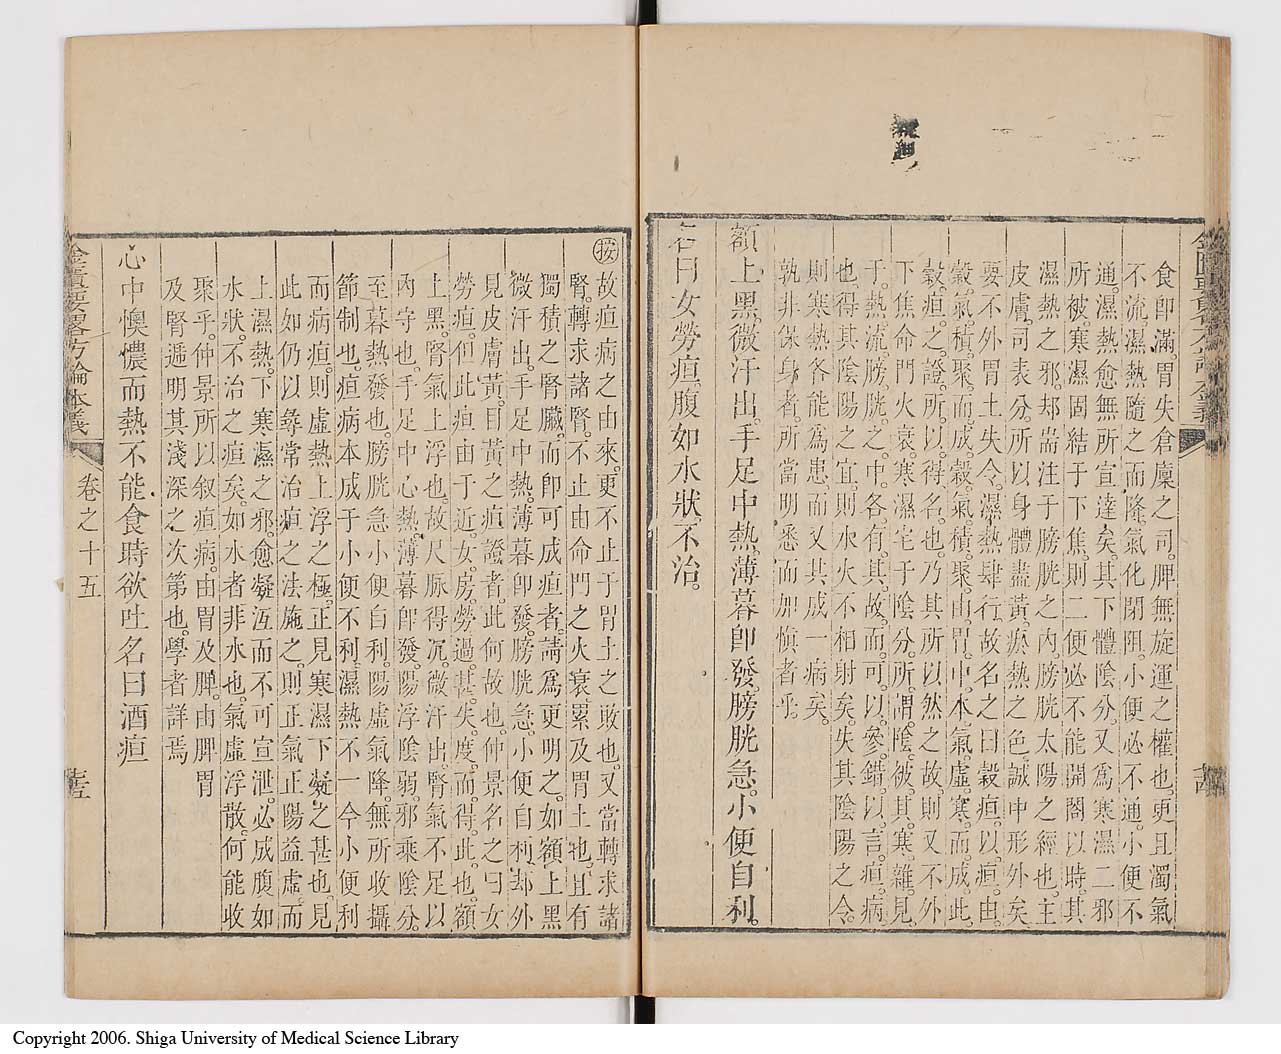 食卽滿胃失倉廩之司脾無旋運之權也更且濁氣
不流濕熱隨之而降氣化閉阻小便必不通小便不
通濕熱愈無所宣達矣其下體陰分又爲寒濕二邪
所被寒濕固結于下焦則二便必不能開闔以時其
濕熱之邪却耑注于膀胱之内膀胱太陽之經也主
皮膚司表分所以身體盡黃瘀熱之色誠中形外矣
要不外胃土失令濕熱肆行故名之曰穀疸以疸由
穀氣積聚而成穀氣積聚由胃中水氣虛寒而成此
穀疸之證所以得名也乃其所以然之故則又不外
下焦命門火衰寒濕宅于陰分所謂陰被其寒雜見
于熱流膀胱之中各有其故而可以參錯以言疸病
也得其陰陽之宜則水火不相射矣失其陰陽之令
則寒熱各能爲患而又共成一病矣
孰非保身者所當明悉而加愼者乎
額上黑微汗出手足中熱薄暮卽發膀胱急小便自利
名曰女勞疸腹如水狀不治
按故疸病之由來更不止于胃土之敗也又當轉求諸
腎轉求諸腎不止由命門之火衰累及胃土也且有
獨積之腎臟而卽可成疸者請爲更明之如額上黑
微汗出手足中熱薄暮卽發膀胱急小便自利却外
見皮膚黃目黃之疸證者此何故也仲景名之曰女
勞疸但此疸由于近女房勞過甚失度而得此也額
上黑腎氣上浮也故尺脉得沉微汗出腎氣不足以
內守也手足中心熱薄暮卽發陽浮陰弱邪乘陰分
至暮熱發也膀胱急小便自利陽虛氣降無所收攝
節制也疸病本成于小便不利濕熱不一今小便利
而病疸則虛熱上浮之極正見寒濕下凝之甚也見
此如仍以尋常治疸之法施之則正氣正陽益虛而
上濕熱下寒濕之邪愈凝沍而不可宣泄必成腹如
水狀不治之疸矣如水者非水也氣虛浮散何能收
聚乎仲景所以叙疸病由胃及脾由脾胃
及腎遞明其淺深之次第也學者詳焉
心中懊憹而熱不能食時欲吐名曰酒疸
金匱要畧方論本義
卷之十五
Copyright 2006. Shiga University of Medical Science Library